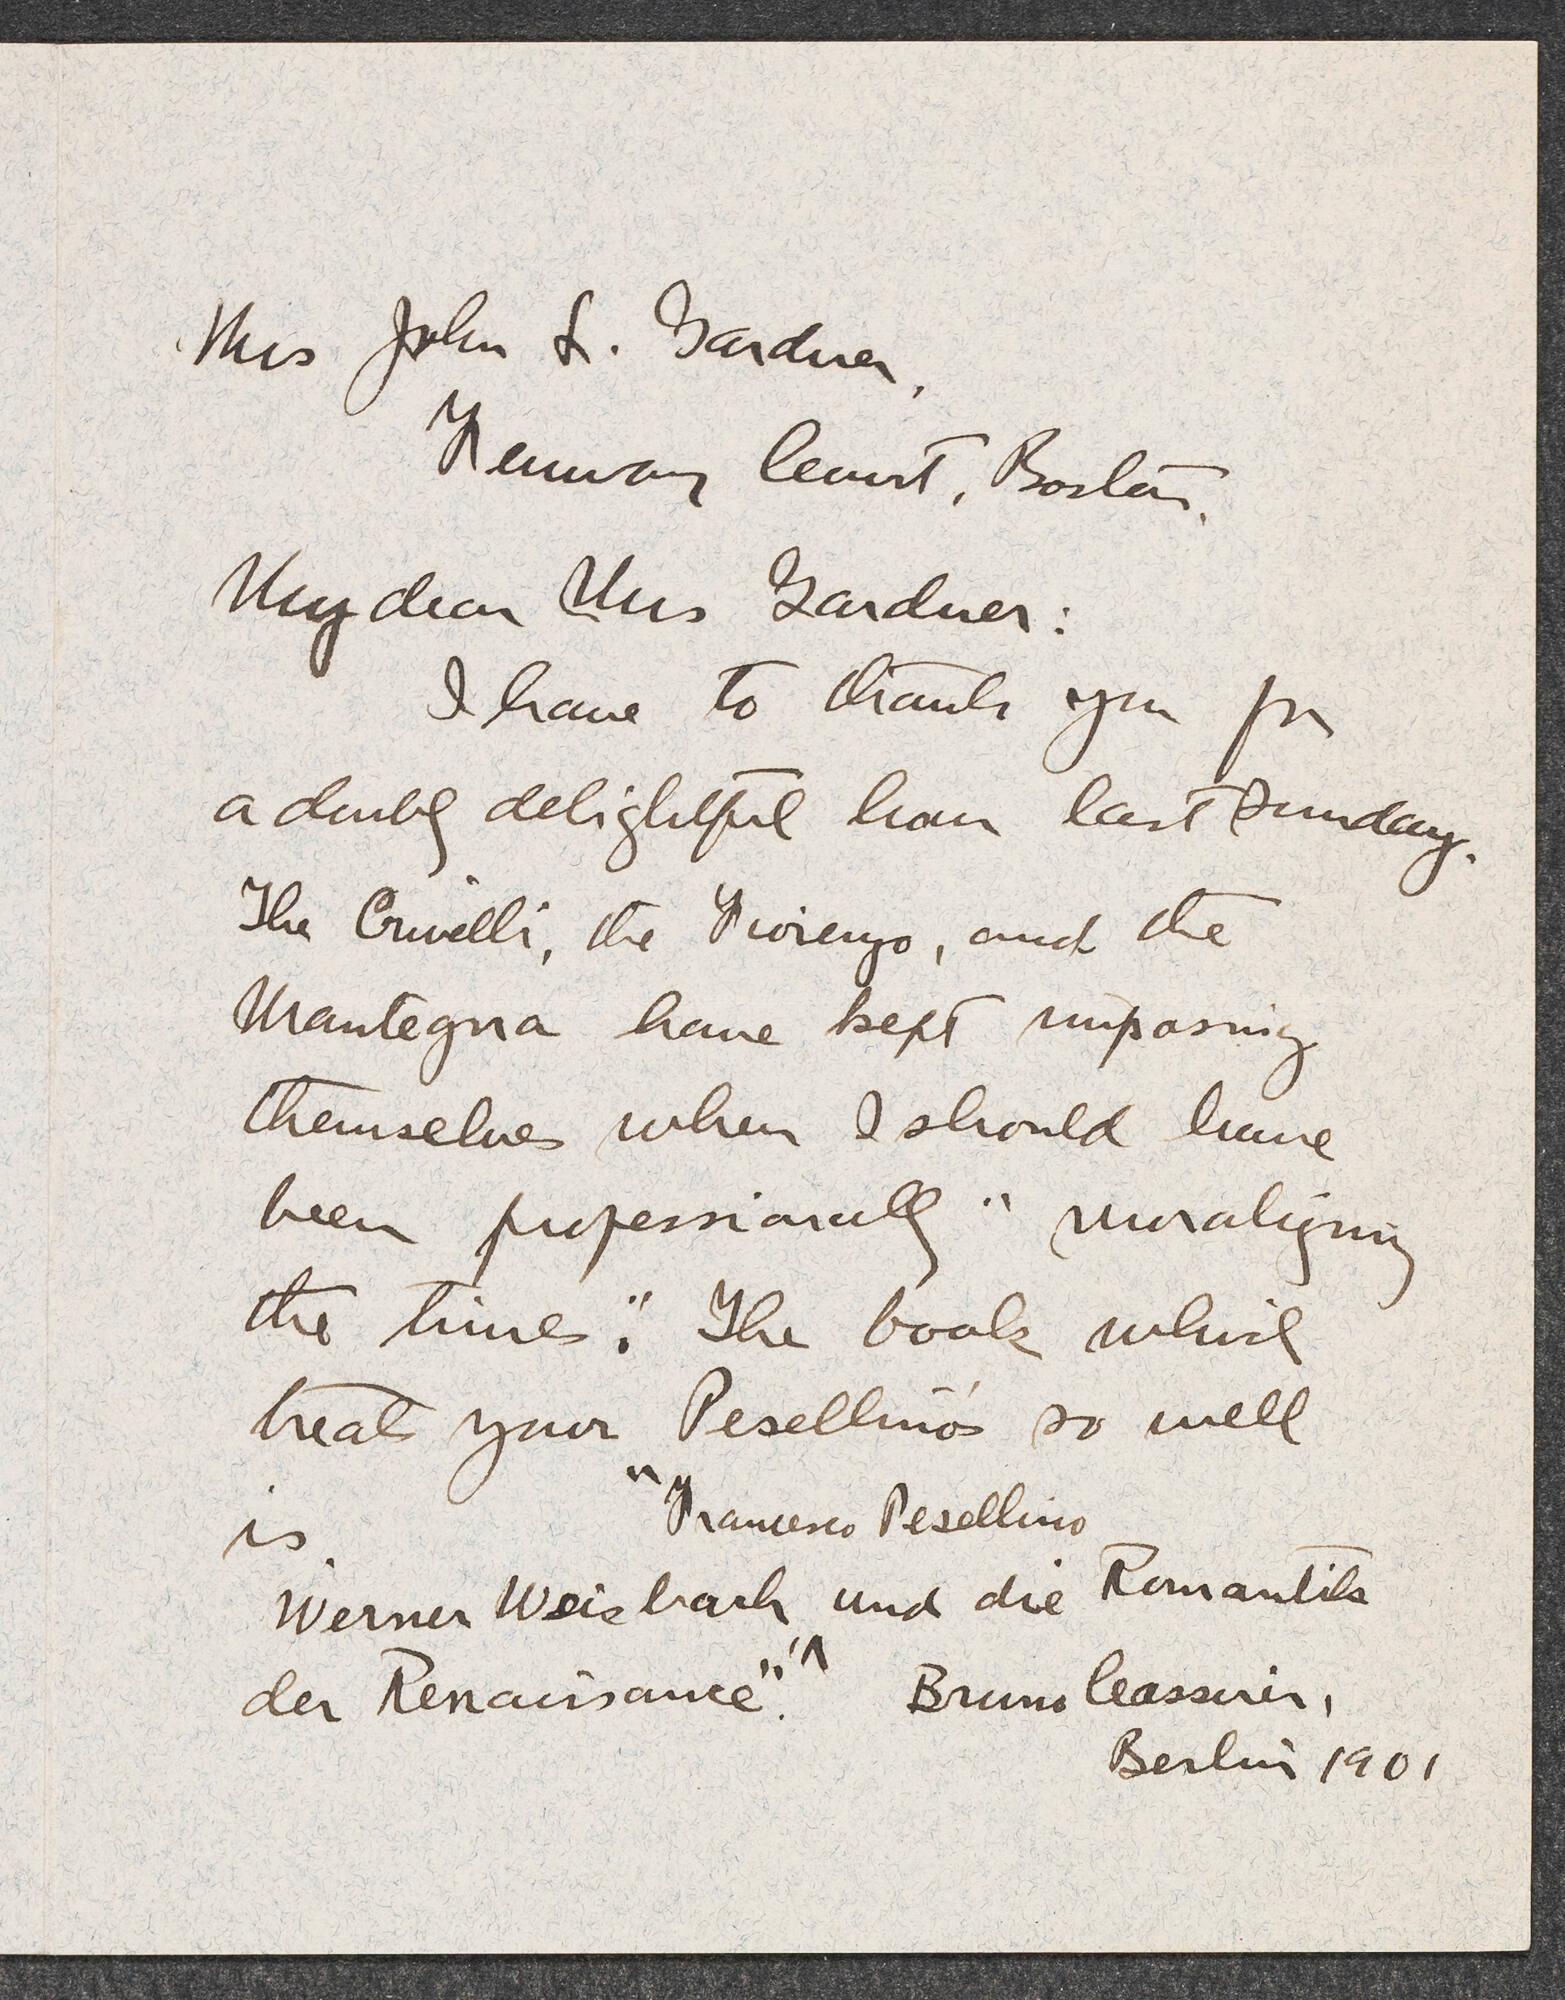 Mrs John L. Gardner,
Fenway Court, Boston.
My dear Mrs Gardner:
I have to thank you for
a doubly delightful hour last Sunday.
The Crivelli, the Fiorenzo, and the
Mantegna have kept imposing
themselves when I should have
been professionally "moralizing
the times". The book which
treats your Pesellino's so well
is "Francesco Pesellino
Werner Weisbach und die Romantik
der Renaissance". Bruno Cassirer,
Berlin 1901